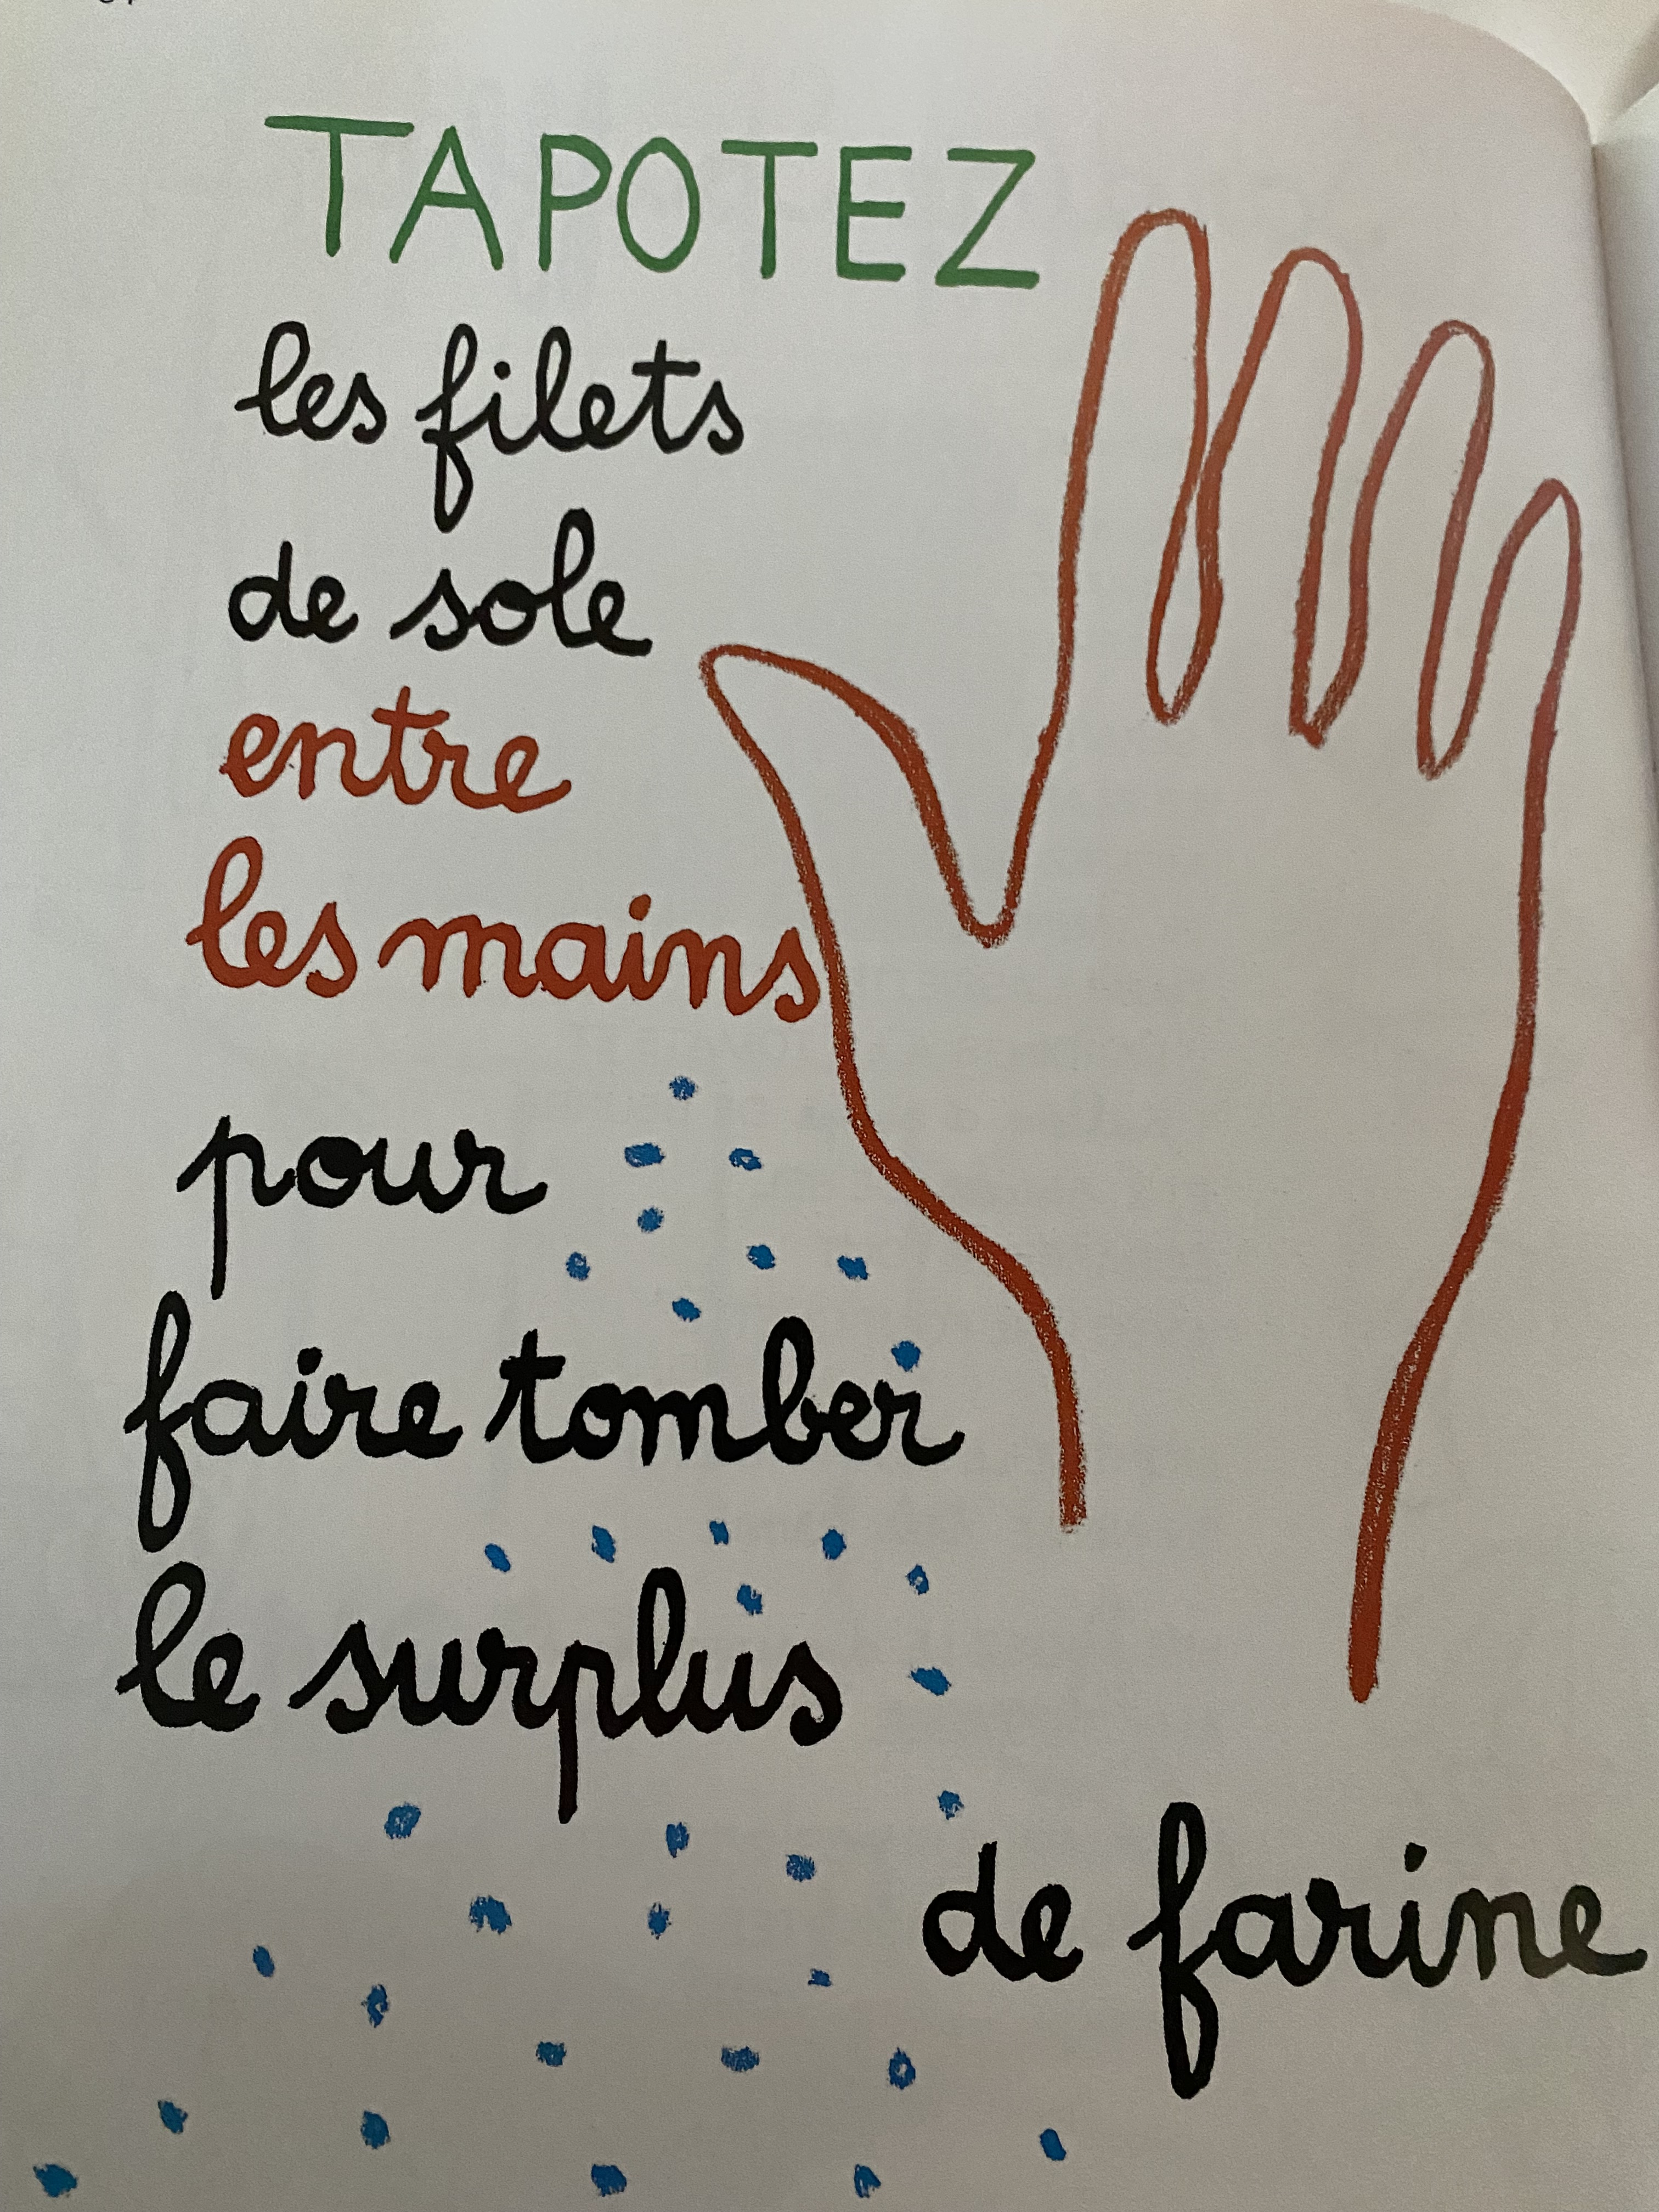 TAPOTEZ
les filets
de sole
entre
les mains
pour
faire tomber
le surplus
de farine